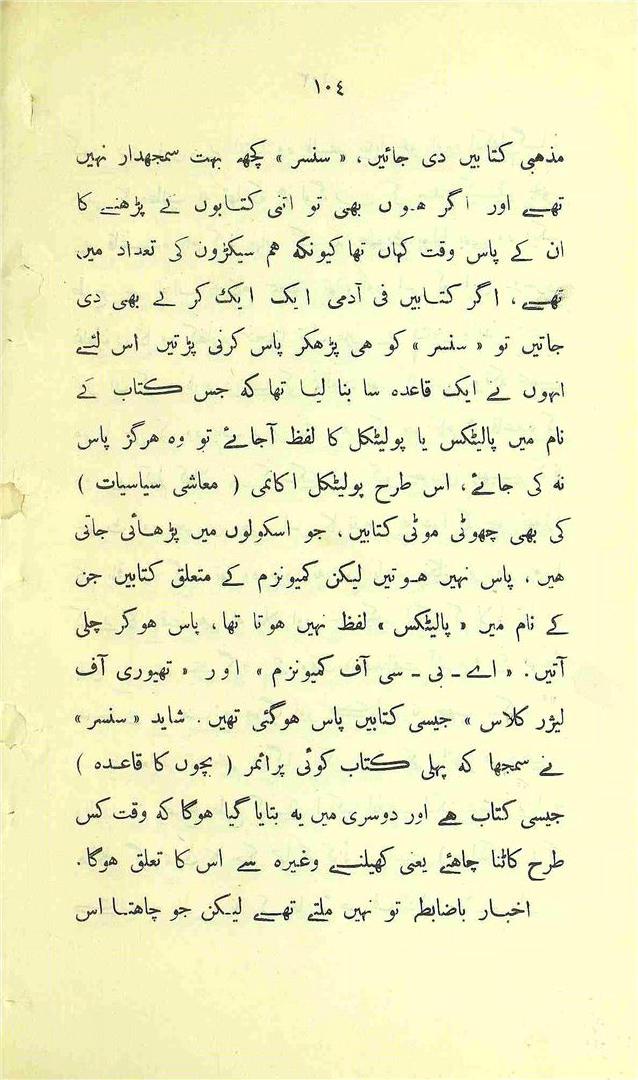 ١٠٤
مذہبی کتابیں دی جائیں ، « سنسر » کچھ بہت سمجھدار نہیں
تھے اور اگر ہوں بھی تو اتنی کتابوں کے پڑھنے کا
ان کے پاس وقت کہاں تھا کیونکہ ہم سیکڑوں کی تعداد میں
تھے ، اگر کتابیں فی آدمی ایک ایک کر کے بھی دی
جاتیں تو « سنسر » کو ہی پڑھکر پاس کرنی پڑتیں اس لئے
انہوں نے ایک قاعدہ سا بنا لیا تھا کہ جس کتاب کے
نام میں پالیٹکس یا پولیٹکل کا لفظ آجائے تو وہ ہرگز پاس
نہ کی جائے ، اس طرح پولیٹکل اکانمی ( معاشی سیاسیات )
کی بھی چھوٹی موٹی کتابیں ، جو اسکولوں میں پڑھائی جاتی
ہیں ، پاس نہیں ہوتیں لیکن کمیونزم کے متعلق کتابیں جن
کے نام میں « پالیٹکس » لفظ نہیں ہوتا تھا ، پاس ہوکر چلی
آتیں . « اے - بی - سی آف کمیونزم » اور « تھیوری آف
لیژر کلاس » جیسی کتابیں پاس ہوگئی تھیں . شاید « سنسر »
نے سمجھا کہ پہلی کتاب کوئی پرائمر ( بچوں کا قاعدہ )
جیسی کتاب ہے اور دوسری میں یہ بتایا گیا ہوگا کہ وقت کس
طرح کاٹنا چاہئے یعنی کھیلنے وغیرہ سے اس کا تعلق ہوگا .
اخبار باضابطہ تو نہیں ملتے تھے لیکن جو چاہتا اس